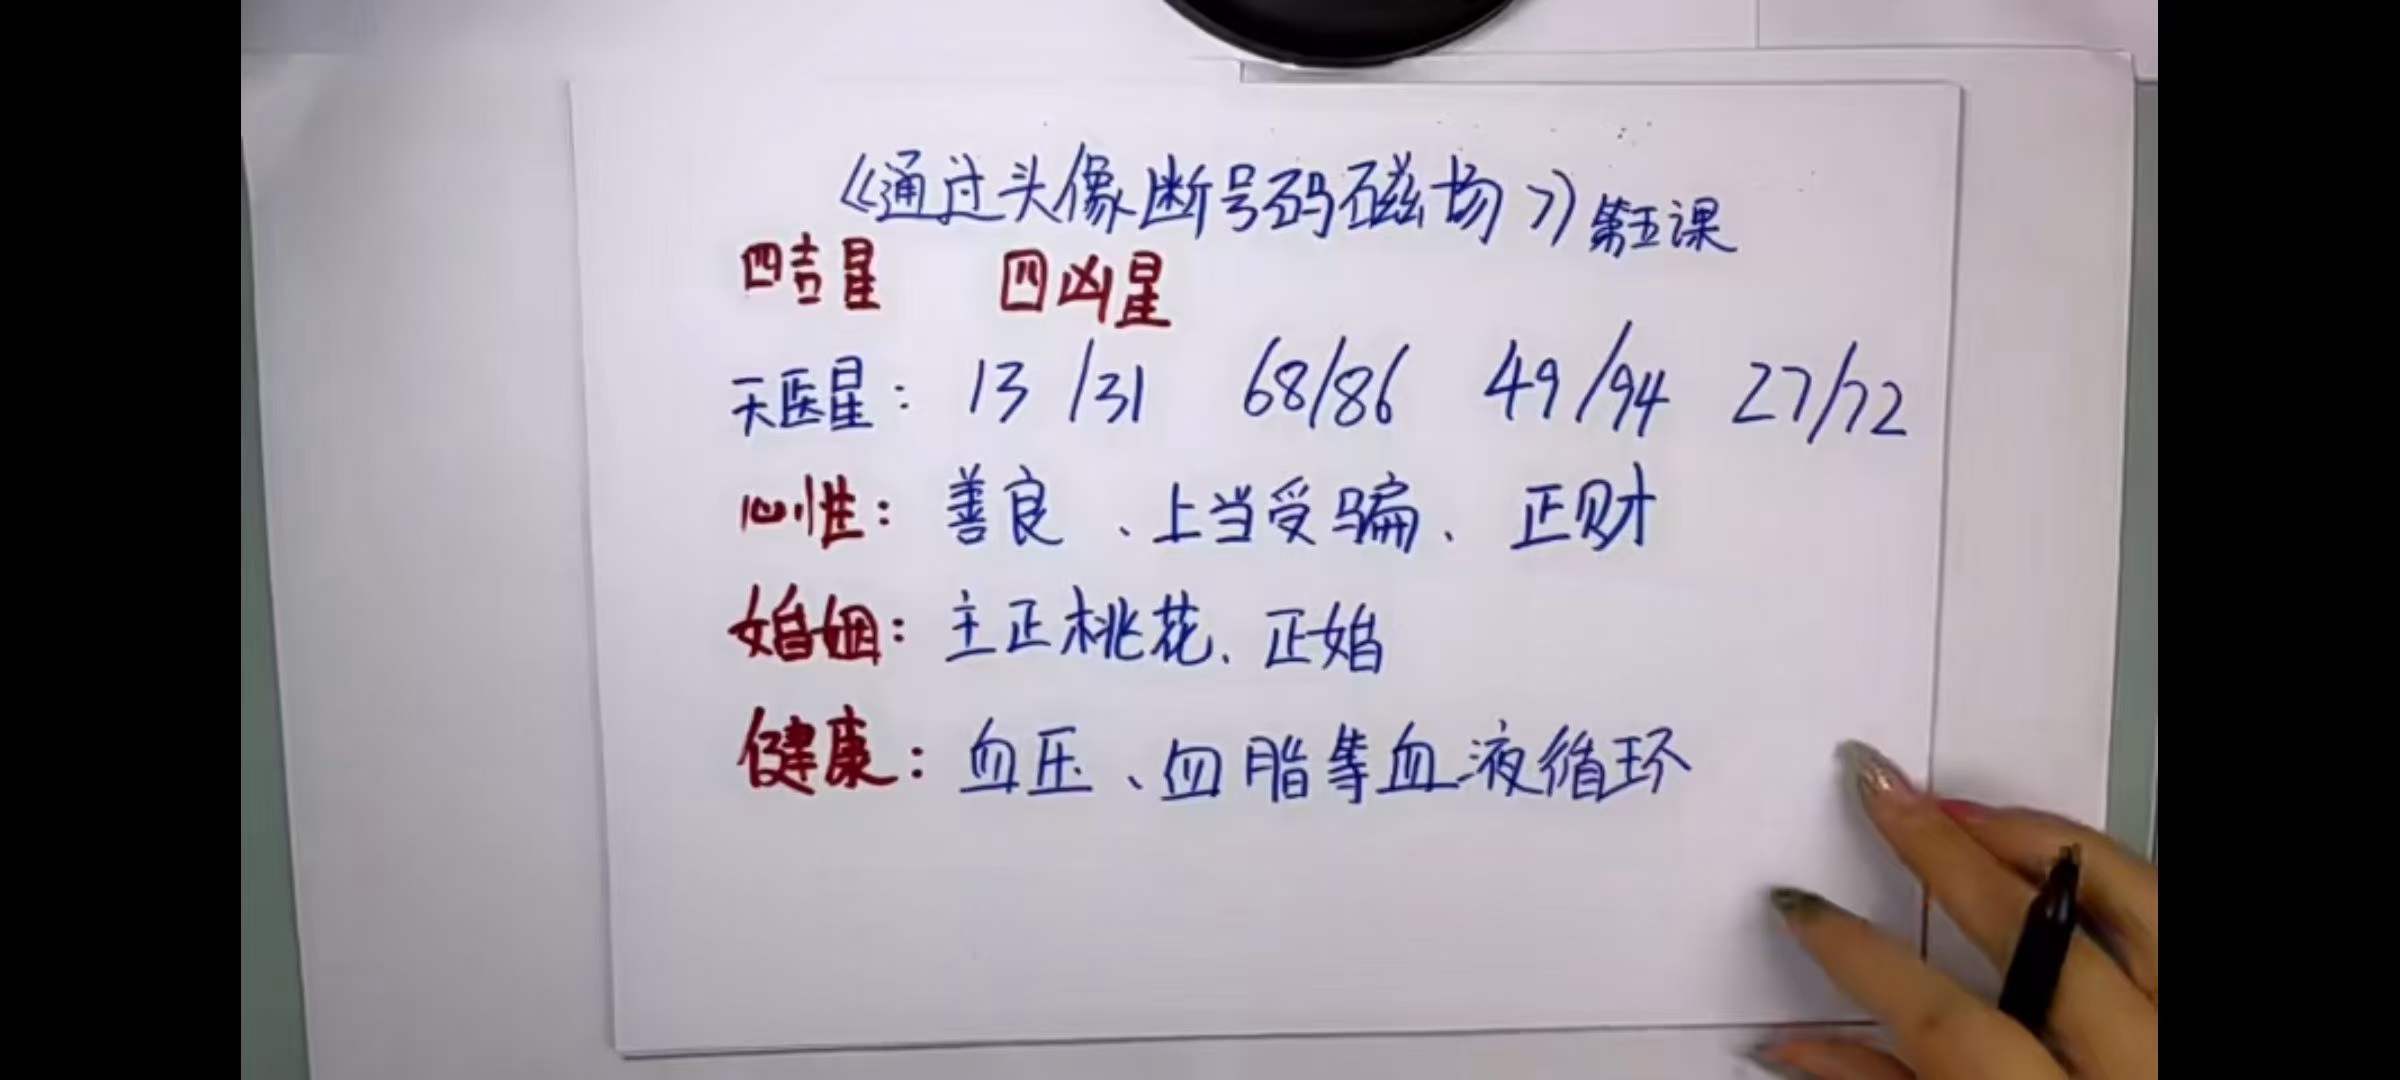 《通过头像断号码磁场》第五课
四吉星 四凶星
天医星: 13/31 68/86 49/94 27/72
心性: 善良、上当受骗、正财
婚姻: 主正桃花、正婚
健康: 血压、血脂等血液循环